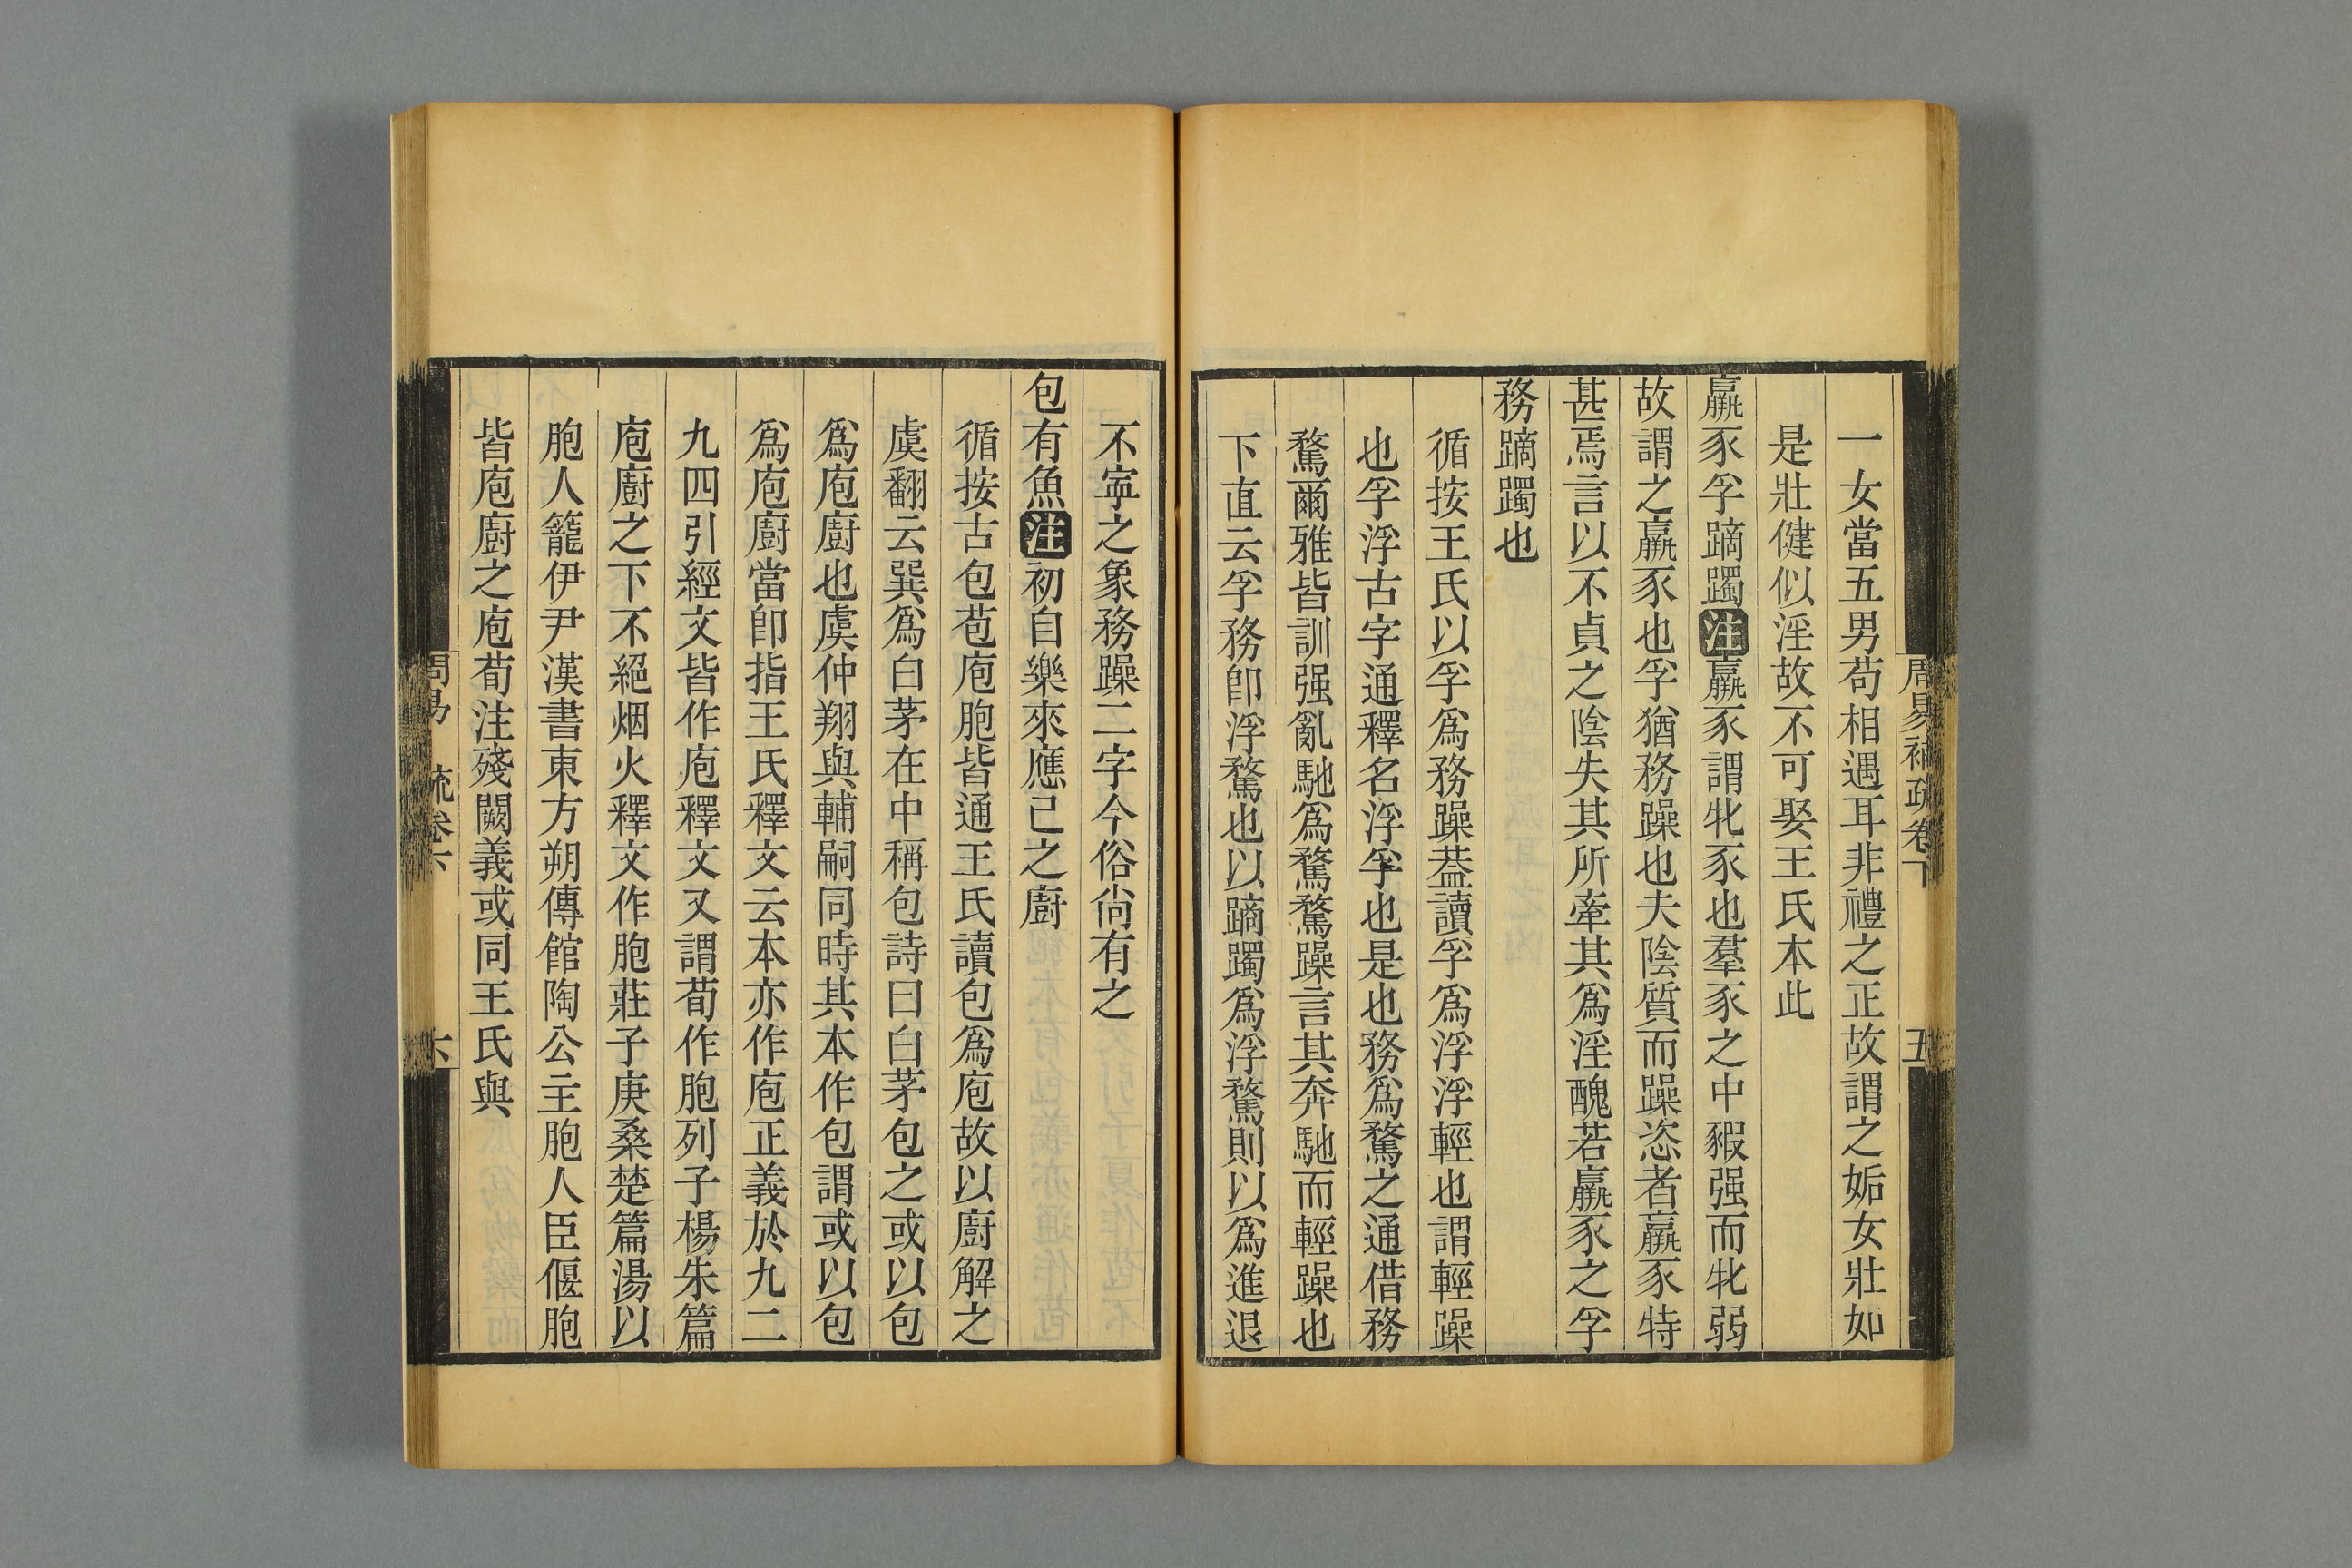 周易補疏卷下
五
一女當五男苟相遇耳非禮之正故謂之姤女壯如
是壯健似淫故不可娶王氏本此
羸豕孚蹢躅注羸豕謂牝豕也羣豕之中豭强而牝弱
故謂之羸豕也孚猶務躁也夫陰質而躁恣者羸豕特
甚焉言以不貞之陰失其所牽其爲淫醜若羸豕之孚
務蹢躅也
循按王氏以孚爲務躁葢讀孚爲浮浮輕也謂輕躁
也孚浮古字通釋名浮孚也是也務爲騖之通借務
騖爾雅皆訓强亂馳爲騖騖躁言其奔馳而輕躁也
下直云孚務卽浮騖也以蹢躅爲浮騖則以爲進退
不寧之象務躁二字今俗尙有之
包有魚注初自樂來應己之廚
循按古包苞庖胞皆通王氏讀包爲庖故以廚解之
虞翻云巽爲白茅在中稱包詩曰白茅包之或以包
爲庖廚也虞仲翔與輔嗣同時其本作包謂或以包
爲庖廚當卽指王氏釋文云本亦作庖正義於九二
九四引經文皆作庖釋文又謂荀作胞列子楊朱篇
庖廚之下不絕烟火釋文作胞莊子庚桑楚篇湯以
胞人籠伊尹漢書東方朔傳館陶公主胞人臣偃胞
皆庖廚之庖荀注殘闕義或同王氏與
周易 疏卷六
六